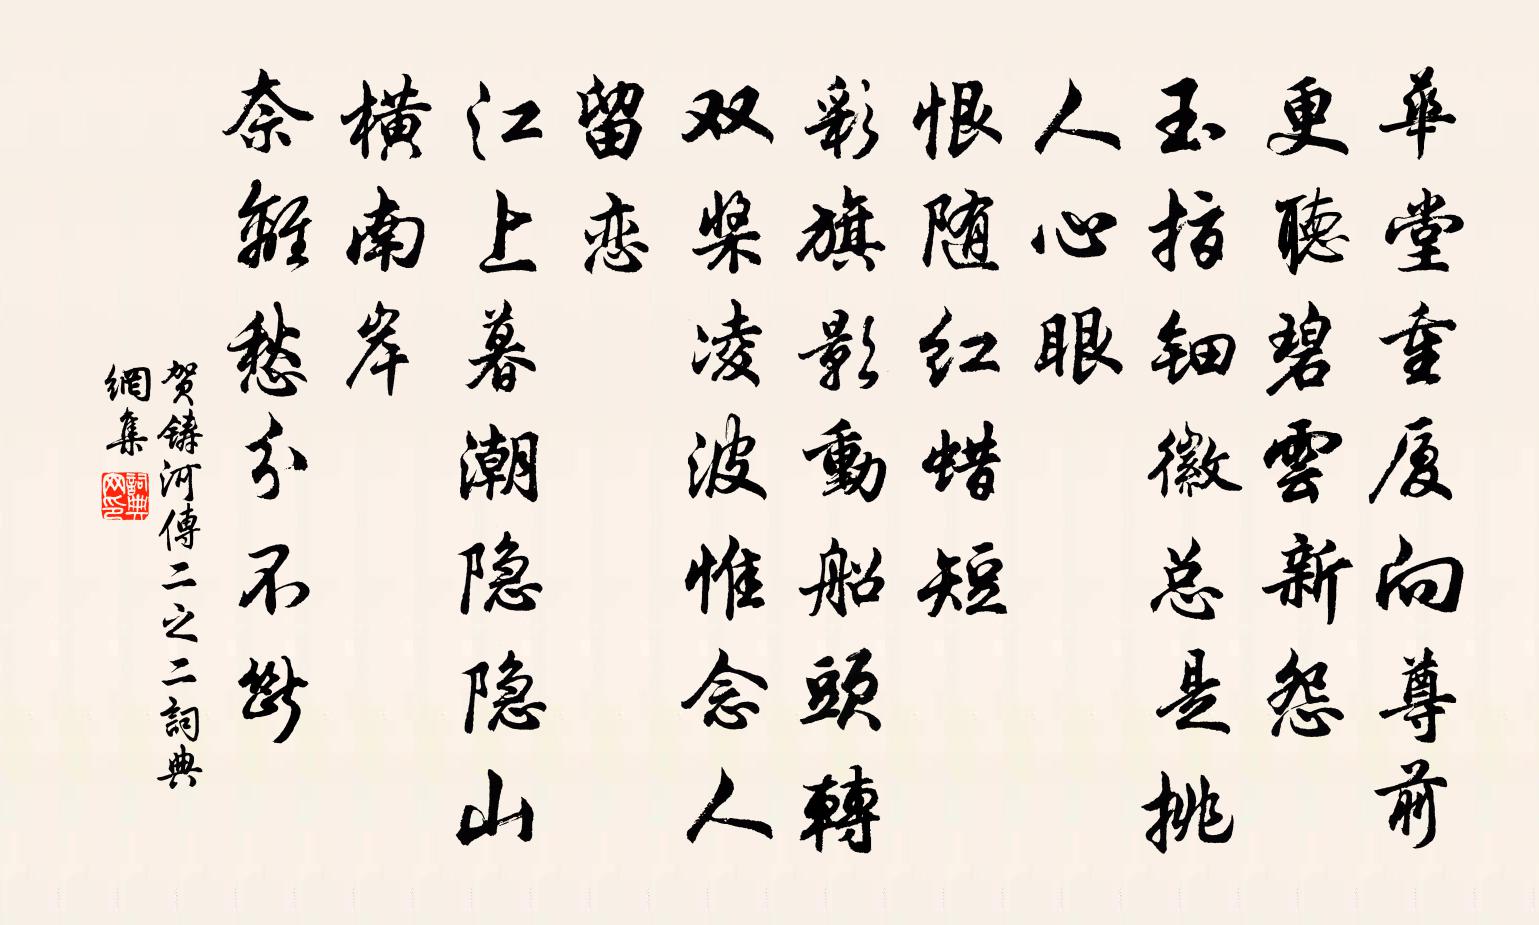 華堂重厦向尊前
更聽碧雲新怨
玉指钿徽总是挑
人心眼
恨随红蜡短
彩旗影動船頭轉
双桨凌波惟念人
留恋
江上暮潮隐隐山
橫南岸
奈離愁分不斷
贺鑄河傳二之二詞典
網集
詞典
网印